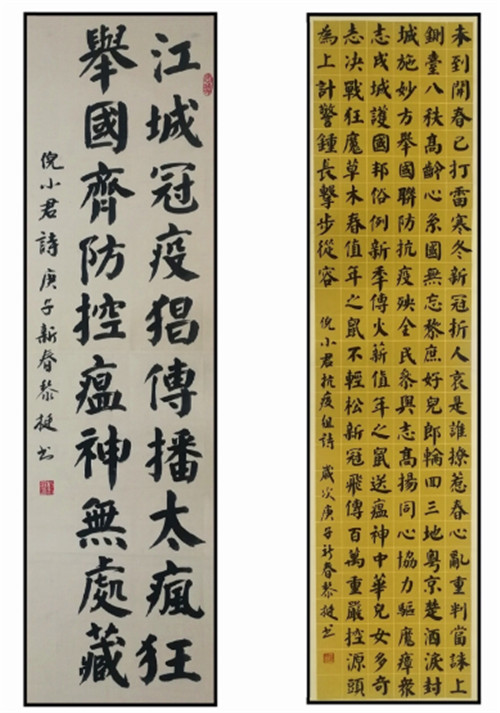 江城冠疫猖傳播太瘋狂
舉國齊防控瘟神無處藏
倪小君詩庚子新春黎挺书
未到開春已打雷寒冬新冠折人哀是誰撩惹春心亂重判當誅上
鍘臺八秩高齡心系國無忘黎庶好兒郎輪回三地粵京楚酒淚封
城施妙方舉國聯防抗疫殃全民參與志高揚同心協力驅魔瘴眾
志成城護國邦俗例新季傳火薪值年之鼠送瘟神中華兒女多奇
志决戰狂魔草木春值年之鼠不輕松新冠飛傳百萬重嚴控源頭
為上計警鍾長擊步從容
倪小君抗疫组詩 歲次庚子新春黎挺书